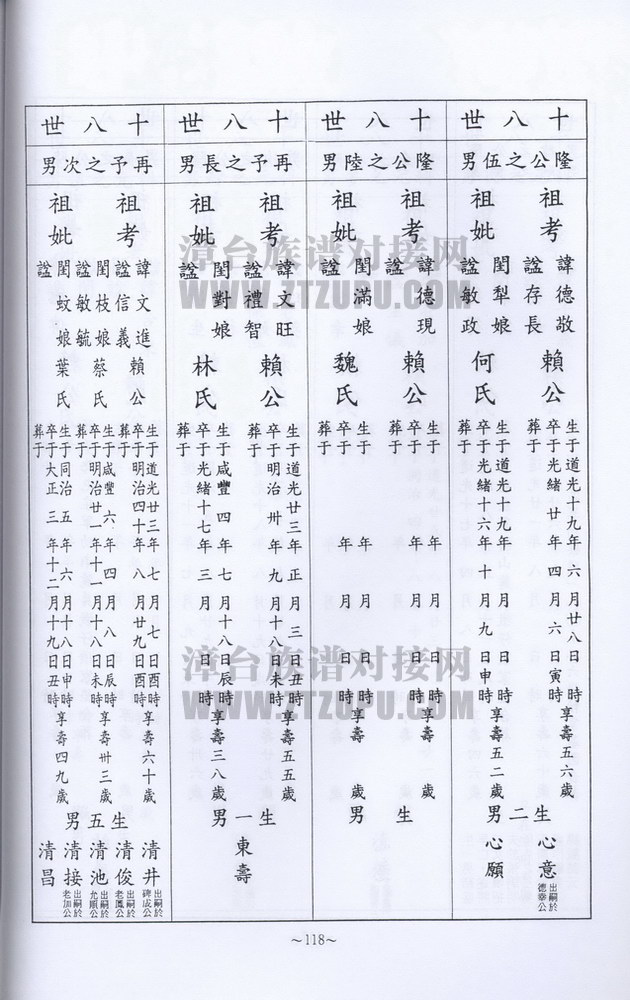 十八世
隆公之伍男
祖考
諱德敬
諡存長
賴公
生于道光十九年六月廿八日 時享壽五六歲
卒于光緒廿年四月六日寅時
葬于
祖妣
閨犁娘
諡敏政
何氏
生于道光十九年十月 日 時享壽五二歲
卒于光緒十六年 月九日申時
葬于
生二男
心意
出嗣於德幸公
心願
十八世
隆公之陸男
祖考
諱德現
諡
賴公
生于 年 月 日 時享壽 歲
卒于 年 月 日 時
葬于
祖妣
閨滿娘
諡
魏氏
生于 年 月 日 時享壽 歲
卒于 年 月 日 時
葬于
生 男
十八世
再予之長男
祖考
諱文旺
諡禮智
賴公
生于道光廿三年正月三日丑時享壽五五歲
卒于明治卅年九月十八日未時
葬于
祖妣
閨對娘
諡
林氏
生于咸豐四年七月十八日辰時享壽三八歲
卒于光緒十七年三月 日 時
葬于
生一男
東壽
十八世
再予之次男
祖考
諱文進
諡信義
賴公
生于道光廿三年七月七日酉時享壽六十歲
卒于明治四十年八月廿九日酉時
葬于
祖妣
閨枝娘
諡敏毓
蔡氏
生于咸豐六年四月八日辰時享壽卅三歲
卒于明治廿一年十一月十八日未時
葬于
閨蚊娘
諡
葉氏
生于同治五年六月十八日申時享壽四九歲
卒于大正三年十二月十九日丑時
葬于
生五男
清井
出嗣於碑成公
清俊
出嗣於老鳳公
清池
出嗣於允順公
清接
出嗣於老加公
清昌
~118~
漳台族谱对接网
WWW.ZTZUPU.COM
漳台族谱对接网
WWW.ZTZUPU.COM